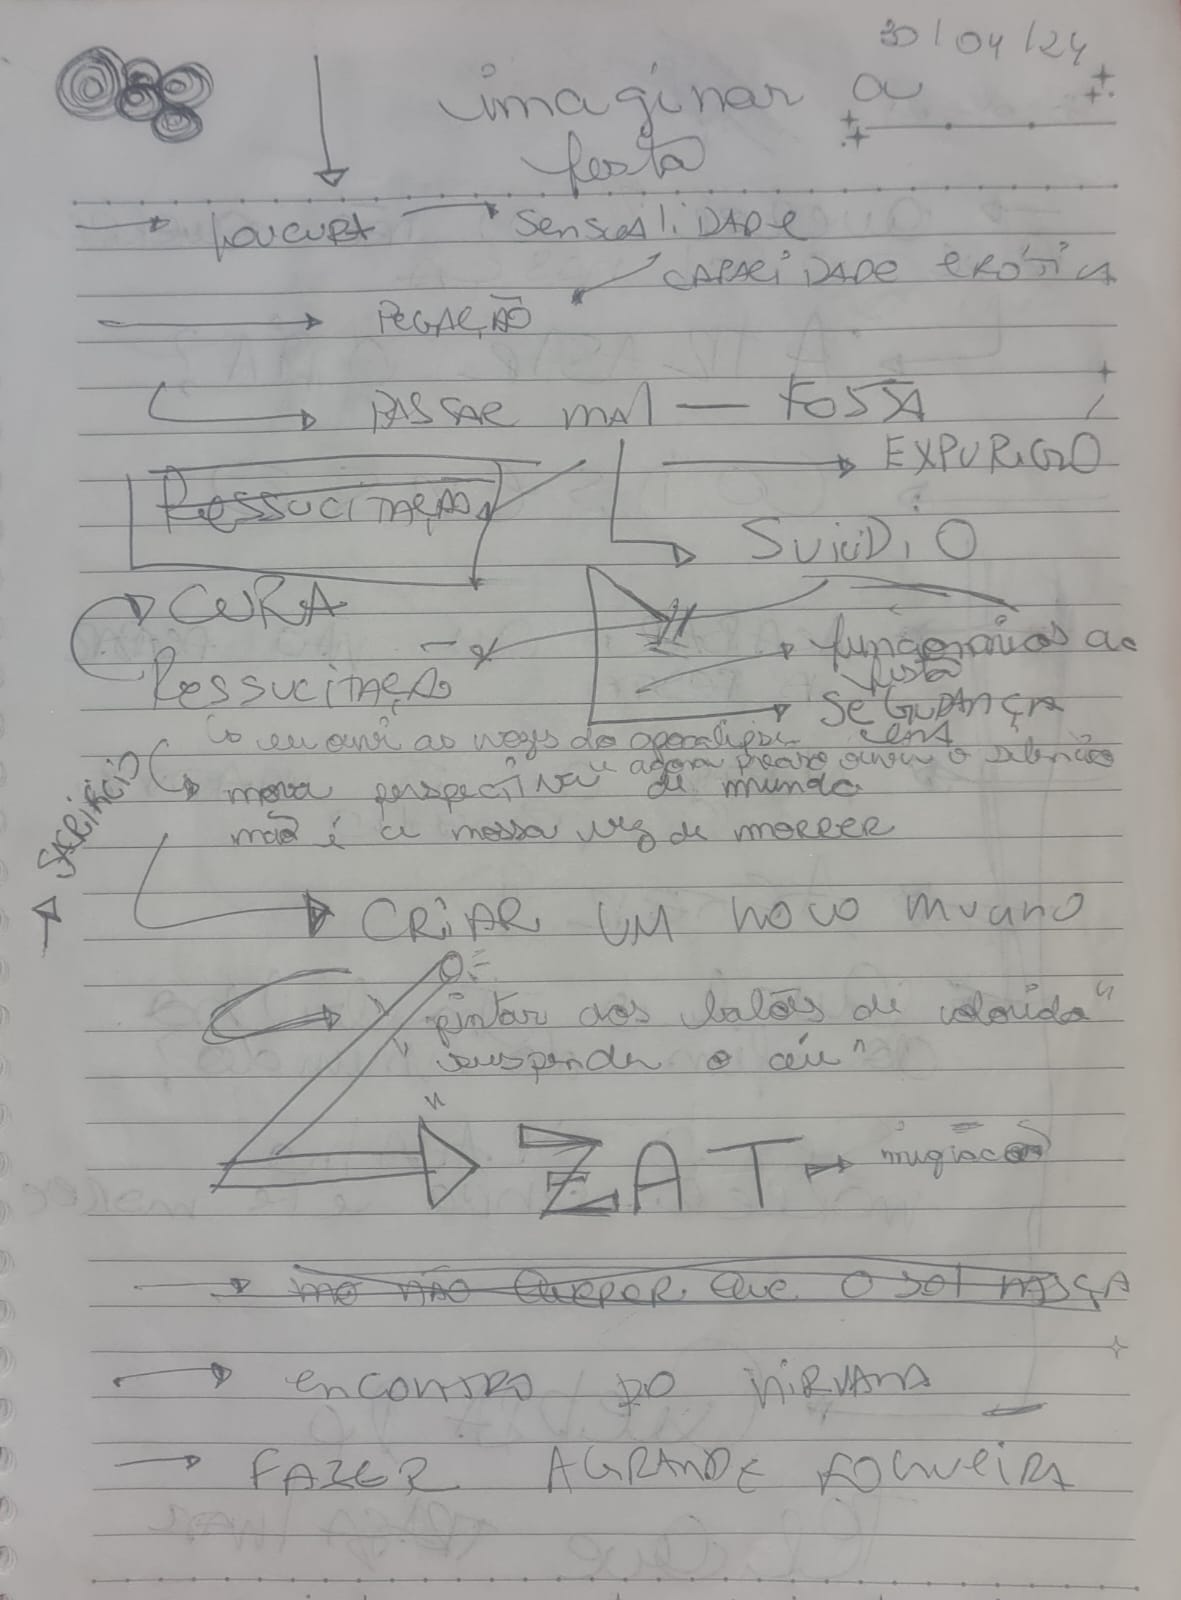 30/04/24
imaginar a
festa
Loucura
Sensualidade
CAPACIDADE ERÓTICA
PEGAÇÃO
PASSAR MAL — FOSSA
EXPURGO
RESSUCITAÇÃO
SUICIDIO
CURA
funcionários da
festa
RESSUCITAÇÃO
SEGURANÇA
"eu ouvi as vozes do apocalipse
agora preciso ouvir o silêncio
SACRIFÍCIO
nova perspectiva de mundo
não é a nossa vez de morrer
CRIAR UM NOVO MUNDO
"pintar dos balões de colorido"
"suspender o céu"
ZAT
NÃO QUERER QUE O SOL NASÇA
ENCONTRO DO NIRVANA
FAZER A GRANDE FOGUEIRA